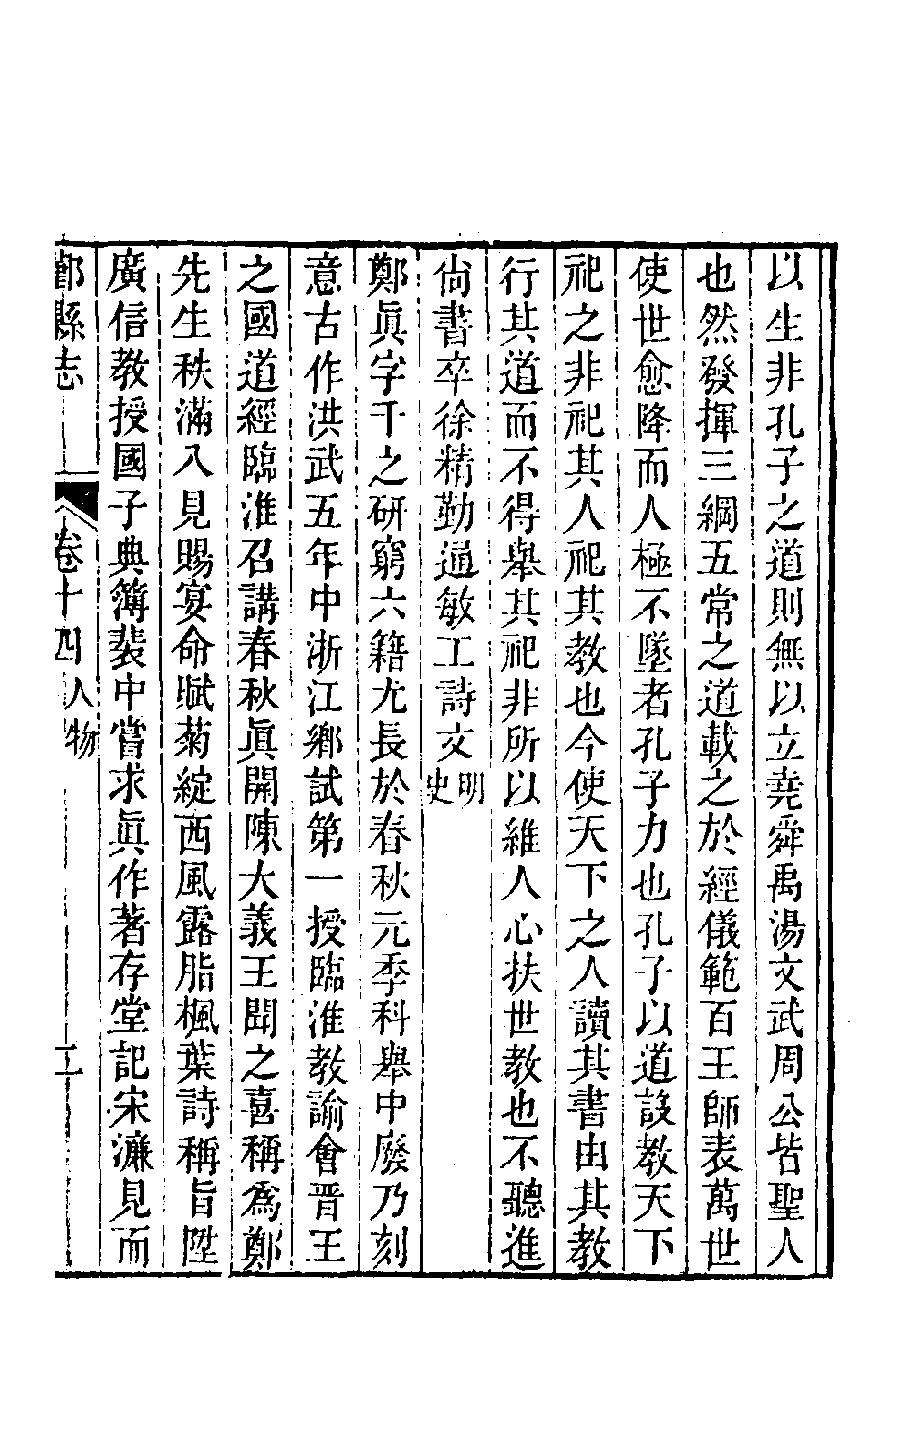 以生非孔子之道則無以立堯舜禹湯文武周公皆聖人
也然發揮三綱五常之道載之於經儀範百王師表萬世
使世愈降而人極不墜者孔子力也孔子以道設教天下
祀之非祀其人祀其教也今使天下之人讀其書由其教
行其道而不得舉其祀非所以維人心扶世教也不聽進
尙書卒徐精勤通敏工詩文明史
鄭眞字千之研窮六籍尤長於春秋元季科舉中廢乃刻
意古作洪武五年中浙江鄉試第一授臨淮教諭會晋王
之國道經臨淮召講春秋眞開陳大義王聞之喜稱爲鄭
先生秩滿入見賜宴命賦菊綻西風露脂楓葉詩稱旨陞
廣信教授國子典簿裴中嘗求眞作著存堂記宋濂見而
鄞縣志
卷十四
人物